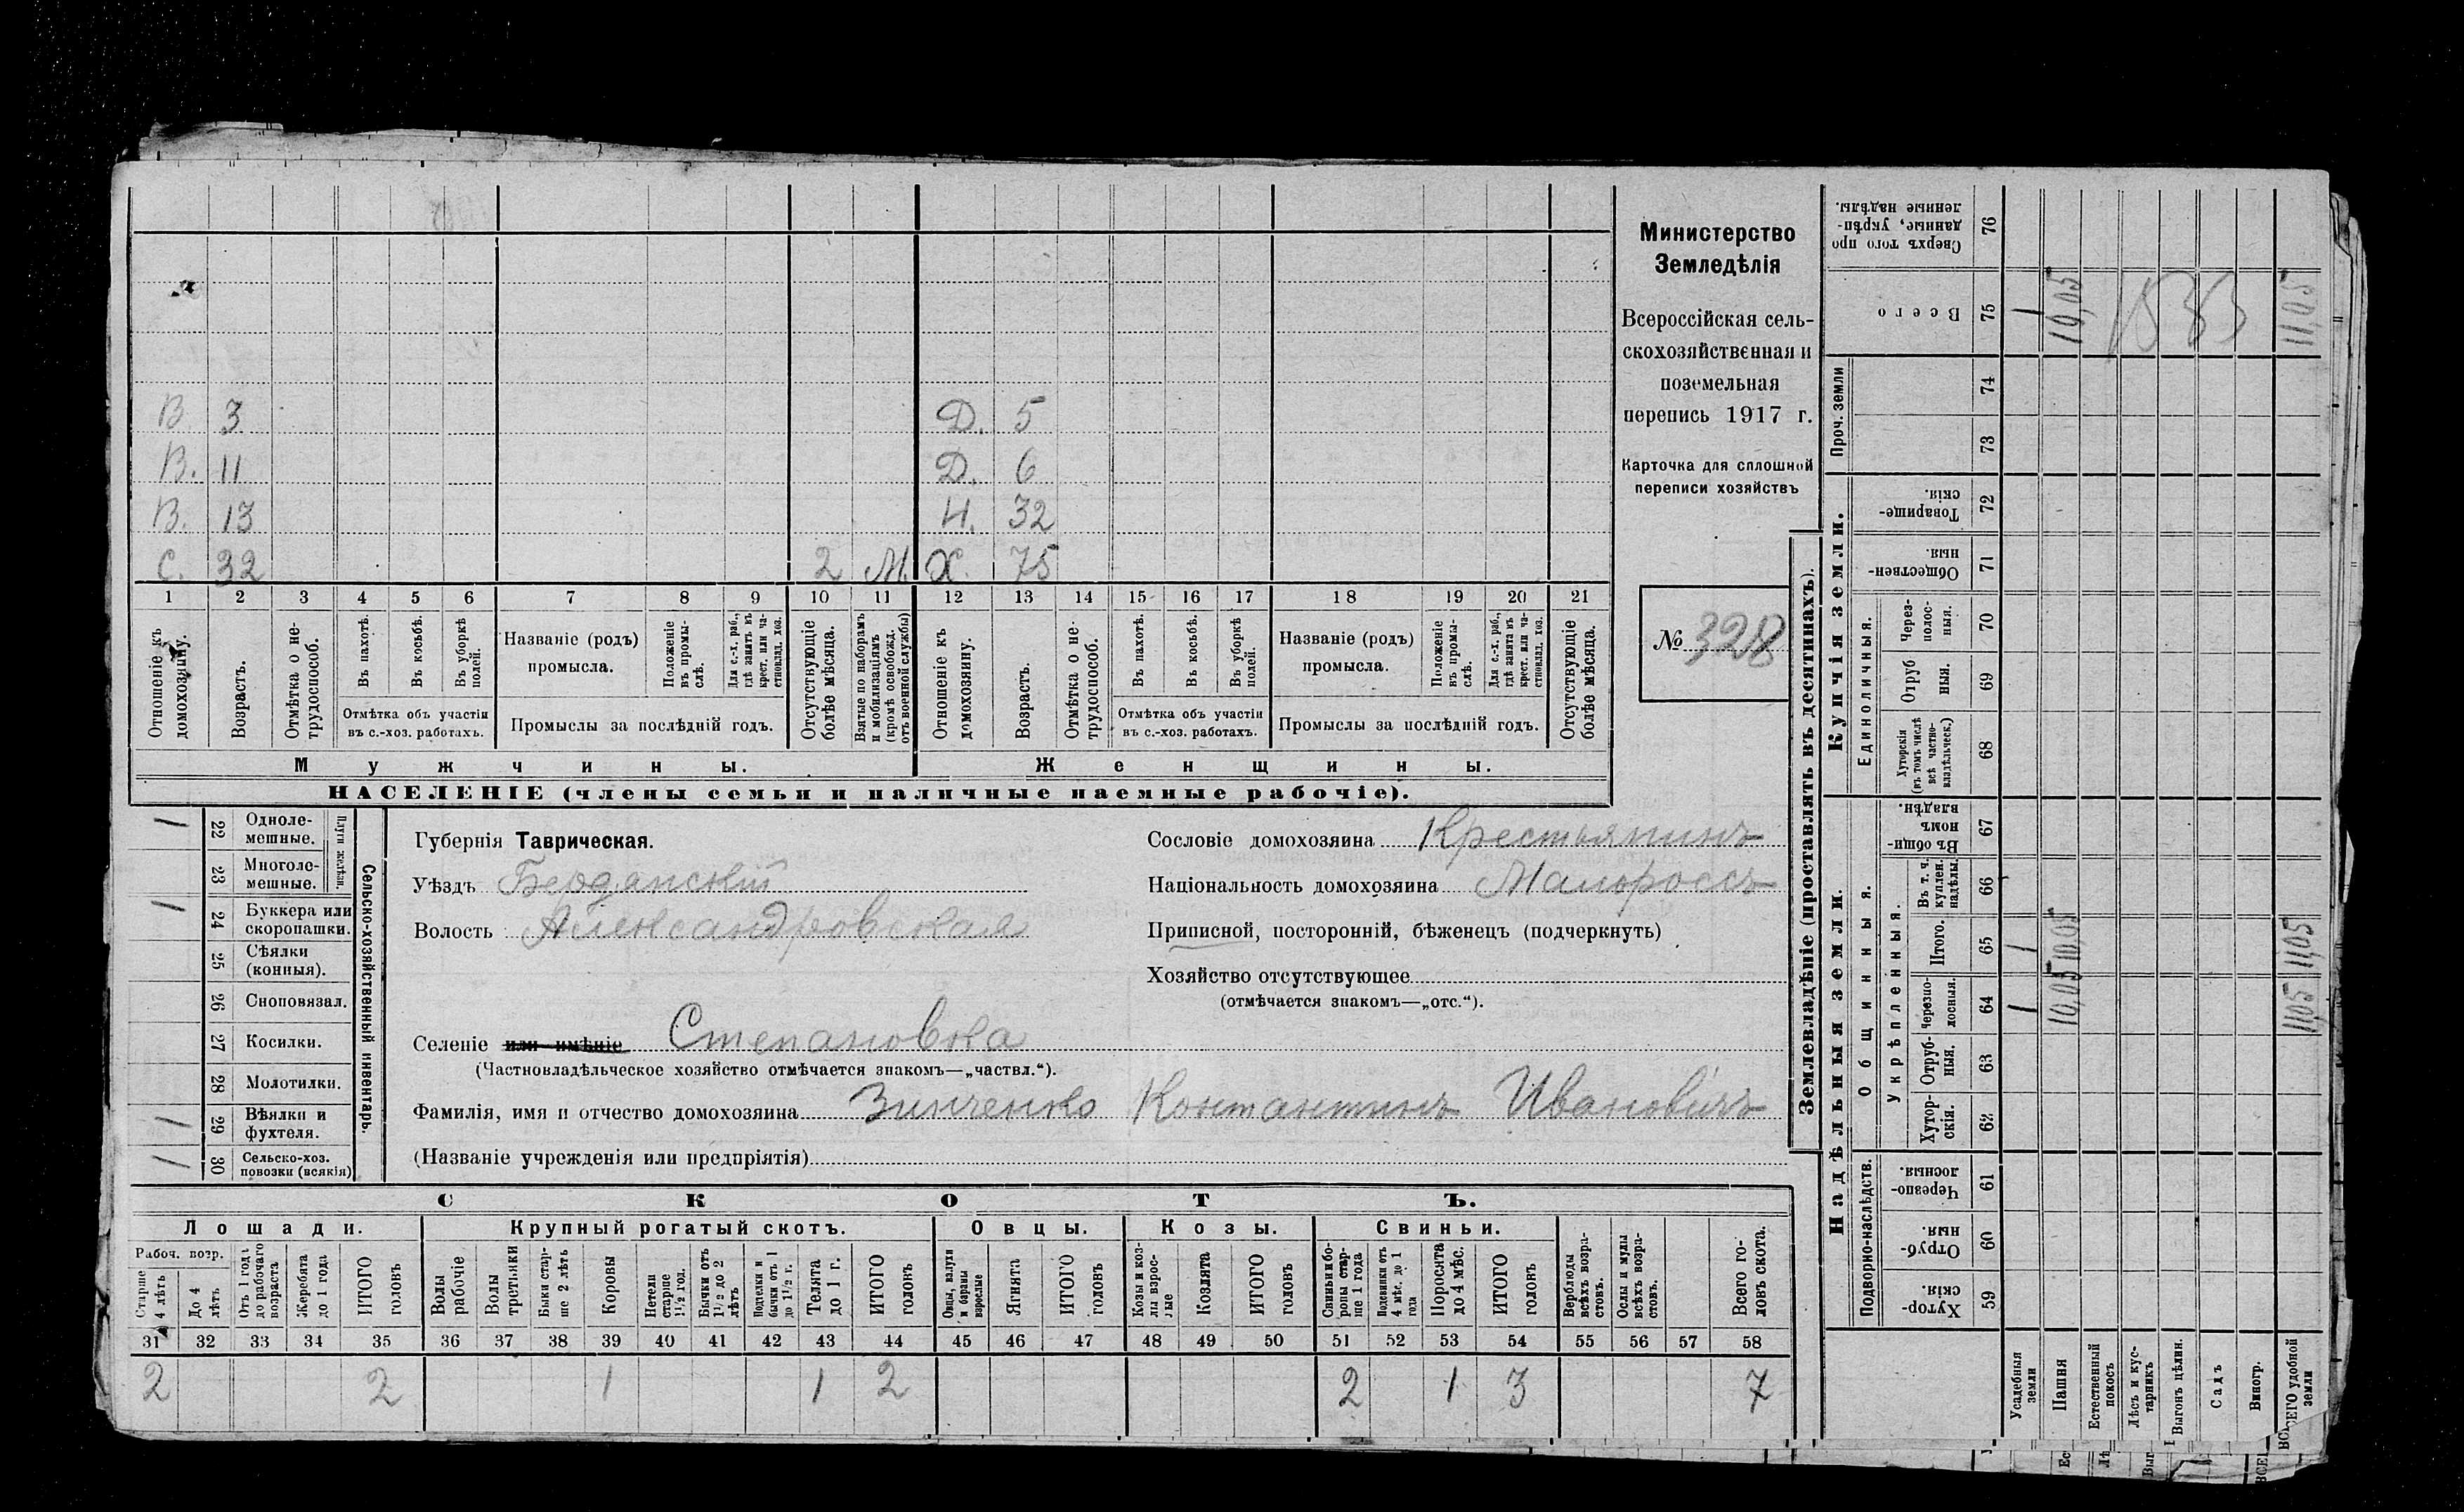 В 3 Д. 5
В. 11 Д. 6
В. 13 Н. 32
С. 32 2 М. Х. 75
1 2 3 4 5 6 7 8 9 10 11 12 13 14 15 16 17 18 19 20 21
Отношеніе къ домохозяину.
Возрастъ.
Отмѣтка о не-трудоспособ.
Въ пахотѣ.
Въ косьбѣ.
Въ уборкѣ полей.
Отмѣтка объ участіи
въ с.-хоз. работахъ.
Названіе (родъ)
промысла.
Положеніе въ промы-слѣ.
Для с.-х. раб., гдѣ занятъ въ крест. или ча-стновлад. хоз.
Промыслы за послѣдній годъ.
Отсутствующіе болѣе мѣсяца.
Взятые по наборамъ и мобилизаціямъ (кромѣ освобожд. отъ военной службы)
Отношеніе къ домохозяину.
Возрастъ.
Отмѣтка о не-трудоспособ.
Въ пахотѣ.
Въ косьбѣ.
Въ уборкѣ полей.
Отмѣтка объ участіи
въ с.-хоз. работахъ.
Названіе (родъ)
промысла.
Положеніе въ промы-слѣ.
Для с.-х. раб., гдѣ занята въ крест. или ча-стновлад. хоз.
Промыслы за послѣдній годъ.
Отсутствующіе болѣе мѣсяца.
Мужчины.
Женщины.
НАСЕЛЕНІЕ (члены семьи и наличные наемные рабочіе).
Министерство
Земледѣлія
Всероссійская сель-
скохозяйственная и
поземельная
перепись 1917 г.
Карточка для сплошной
переписи хозяйствъ
№ 328
Сельско-хозяйственный инвентарь.
Плуги желѣзн.
1 22 Одноле-мешные.
23 Многоле-мешные.
1 24 Буккера или скоропашки.
25 Сѣялки (конныя).
26 Сноповязал.
27 Косилки.
28 Молотилки.
1 29 Вѣялки и фухтеля.
1 30 Сельско-хоз. повозки (всякія)
Губернія Таврическая.
Уѣздъ Бердянскій
Волость Александровская
Сословіе домохозяина Крестьянинъ
Національность домохозяина Малороссъ
Приписной, посторонній, бѣженецъ (подчеркнуть)
Хозяйство отсутствующее
(отмѣчается знакомъ—„отс.“).
Селеніе или имѣніе Степановка
(Частновладѣльческое хозяйство отмѣчается знакомъ—„частвл.“).
Фамилія, имя и отчество домохозяина Зинченко Контантинъ Ивановичъ
(Названіе учрежденія или предпріятія)
СКОТЪ.
Лошади. Крупный рогатый скотъ. Овцы. Козы. Свиньи.
Рабоч. возр.
Старше 4 лѣтъ
До 4 лѣтъ
Отъ 1 года до рабочаго возраста
Жеребята до 1 года
ИТОГО головъ
Волы рабочіе
Волы третьяки
Быки стар-ше 2 лѣтъ
Коровы
Нетели старше 1½ год.
Бычки отъ 1½ до 2 лѣтъ
Подтелки и бычки отъ 1 до 1½ г.
Телята до 1 г.
ИТОГО головъ
Овцы, валухи и бараны взрослые
Ягнята
ИТОГО головъ
Козы и коз-лы взрос-лые
Козлята
ИТОГО головъ
Свиньи и бо-ровы стар-ше 1 года
Подсвинки отъ 4 мѣс. до 1 года
Поросята до 4 мѣс.
ИТОГО головъ
Верблюды всѣхъ возра-стовъ.
Ослы и мулы всѣхъ возра-стовъ.
Всего го-ловъ скота.
31 32 33 34 35 36 37 38 39 40 41 42 43 44 45 46 47 48 49 50 51 52 53 54 55 56 57 58
2 2 1 1 2 2 1 3 7
Землевладѣніе (проставлять въ десятинахъ).
Надѣльныя земли.
Купчія земли.
Проч. земли
Подворно-наслѣдств.
Общинныя.
Укрѣпленныя.
Единоличныя.
Сверхъ того про данные, укрѣп-ленные надѣлы. 76
Всего 75 1 10,05 11,05
74
73
Товарище-скія. 72
Обществен-ныя. 71
Через-полос-ныя. 70
Отруб ныя. 69
Хуторскія (въ томъ числѣ всѣ частно-владѣльческ.) 68
Въ общи-номъ владѣн. 67
Въ т. ч. куплен. надѣлы. 66
Итого. 65 1 10,05 11,05
Черезпо-лосныя. 64 1 10,05 11,05
Отруб-ныя. 63
Хутор-скія. 62
Черезпо-лосныя. 61
Отруб-ныя. 60
Хутор-скія. 59
Усадебныя земли
Пашня
Естественный покосъ
Лѣсъ и кус-тарникъ
Выгонъ цѣлин.
Садъ
Виногр.
ВСЕГО удобной земли